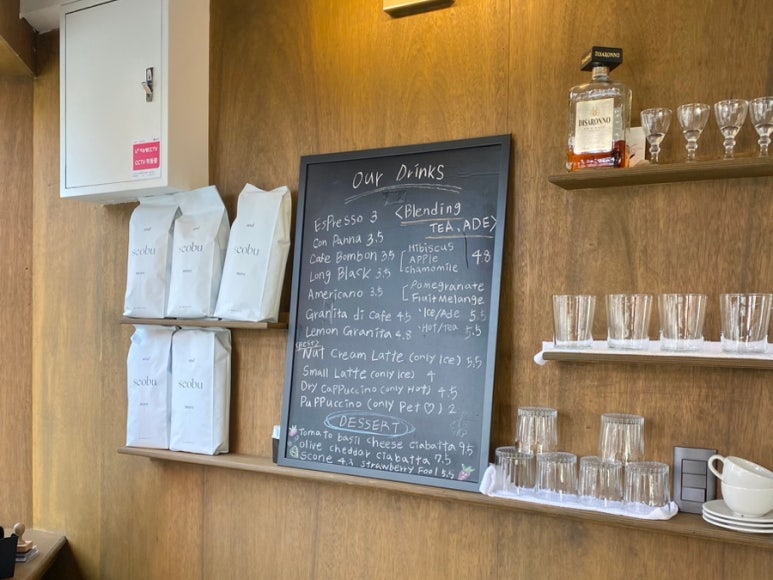 CCTV 작동중
DISARONNO
DISARONNO
seobu
seobu
seobu
seobu
seobu
Our Drinks
Espresso 3
Con Panna 3.5
Cafe Bombon 3.5
Long Black 3.5
Americano 3.5
Granita di Cafe 4.5
Lemon Granita 4.8
(BEST)
Nut Cream Latte (only Ice) 5.5
Small Latte (only Ice) 4
Dry Cappuccino (only Hot) 4.5
PuPPuccino (only Pet ♡) 2
<Blending
TEA, ADE>
Hibiscus
APPle 4.8
chamomile
Pomegranate
Fruit Melange
·Ice/Ade 5.5
·Hot/Tea 5.5
DESSERT
Tomato basil cheese ciabatta 9.5
olive cheddar ciabatta 7.5
Scone 4.3 Strawberry Fool 5.5